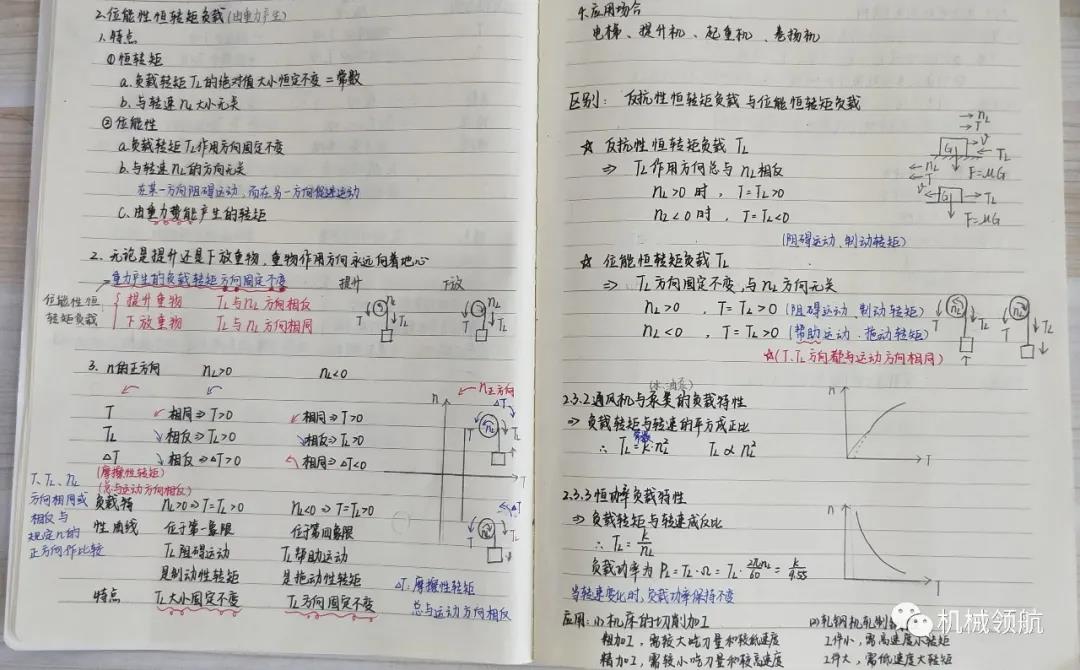 2.位能性恒转矩负载(由重力产生)
1.特点
①恒转矩
a.负载转矩TL的绝对值大小恒定不变=常数
b.与转速nL大小无关
②位能性
a.负载转矩TL作用方向固定不变
b.与转速nL的方向无关
在某一方向阻碍运动,而在另一方向促进运动
C.由重力势能产生的转矩
2.无论是提升还是下放重物,重物作用方向永远向着地心
重力产生的负载转矩方向固定不变
提升 下放
位能性恒转矩负载
提升重物 TL与nL方向相反
下放重物 TL与nL方向相同
nL
T TL
nL
T TL
3. n的正方向 nL>0 nL<0
T 相同⇒T>0 相同⇒T>0
TL 相反⇒TL>0 相反⇒TL>0
ΔT 相反⇒ΔT>0 相同⇒ΔT<0
(摩擦性转矩)
(总与运动方向相反)
T、TL、nL
方向相同或
相反与
规定n的
正方向作比较
负载特性曲线
nL>0⇒T=TL>0 nL<0⇒T=TL>0
位于第一象限 位于第四象限
TL阻碍运动 TL帮助运动
是制动性转矩 是拖动性转矩
特点 TL大小固定不变 TL方向固定不变
n
n正方向
ΔT
T nL TL
T
ΔT
T nL TL
ΔT:摩擦性转矩
总与运动方向相反
4.应用场合
电梯、提升机、起重机、卷扬机
区别: 反抗性恒转矩负载与位能恒转矩负载
☆ 反抗性恒转矩负载TL
⇒ TL作用方向总与nL相反
nL>0时, T=TL>0
nL<0时, T=TL<0
(阻碍运动、制动转矩)
nL
T
G v TL
F=μG
nL
T
v G TL
F=μG
☆ 位能恒转矩负载TL
⇒ TL方向固定不变,与nL方向无关
nL>0 , T=TL>0 (阻碍运动、制动转矩)
nL<0 , T=TL>0 (帮助运动、拖动转矩)
☆(T、TL方向都与运动方向相同)
nL
T TL
nL
T TL
(水、油泵)
2.3.2通风机与泵类的负载特性
⇒ 负载转矩与转速的平方成正比
常数
∴ TL=k·nL² TL∝nL²
n
T
2.3.3恒功率负载特性
⇒ 负载转矩与转速成反比
∴ TL=k/nL
负载功率为 PL=TL·Ω=TL·2πnL/60=k/9.55
当转速变化时,负载功率保持不变
n
T
应用:(1)机床的切削加工
粗加工,需较大吃刀量和较低速度
精加工,需较小吃刀量和较高速度
(2)轧钢机轧制
工件小,需高速度小转矩
工件大,需低速度大转矩
机械领航